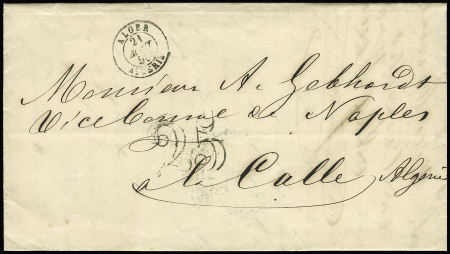 ALGER
21
ALGERIE
Monsieur A. Gebhardt
Vice Consul de Naples
25
à la Calle Algérie